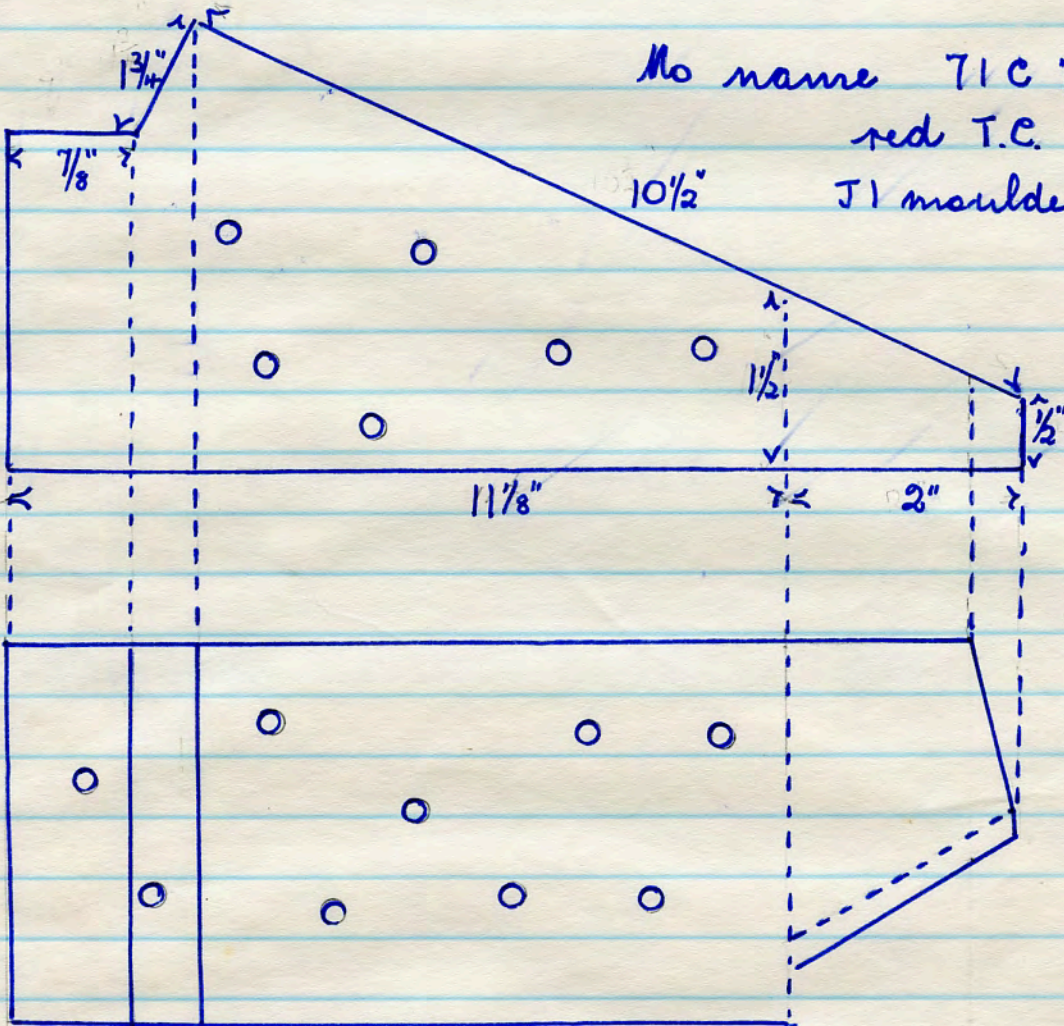 No name 71C "
red T.C.
J1 moulde
1 3/4"
7/8"
10 1/2"
1 1/2"
1/2"
11 7/8"
2"